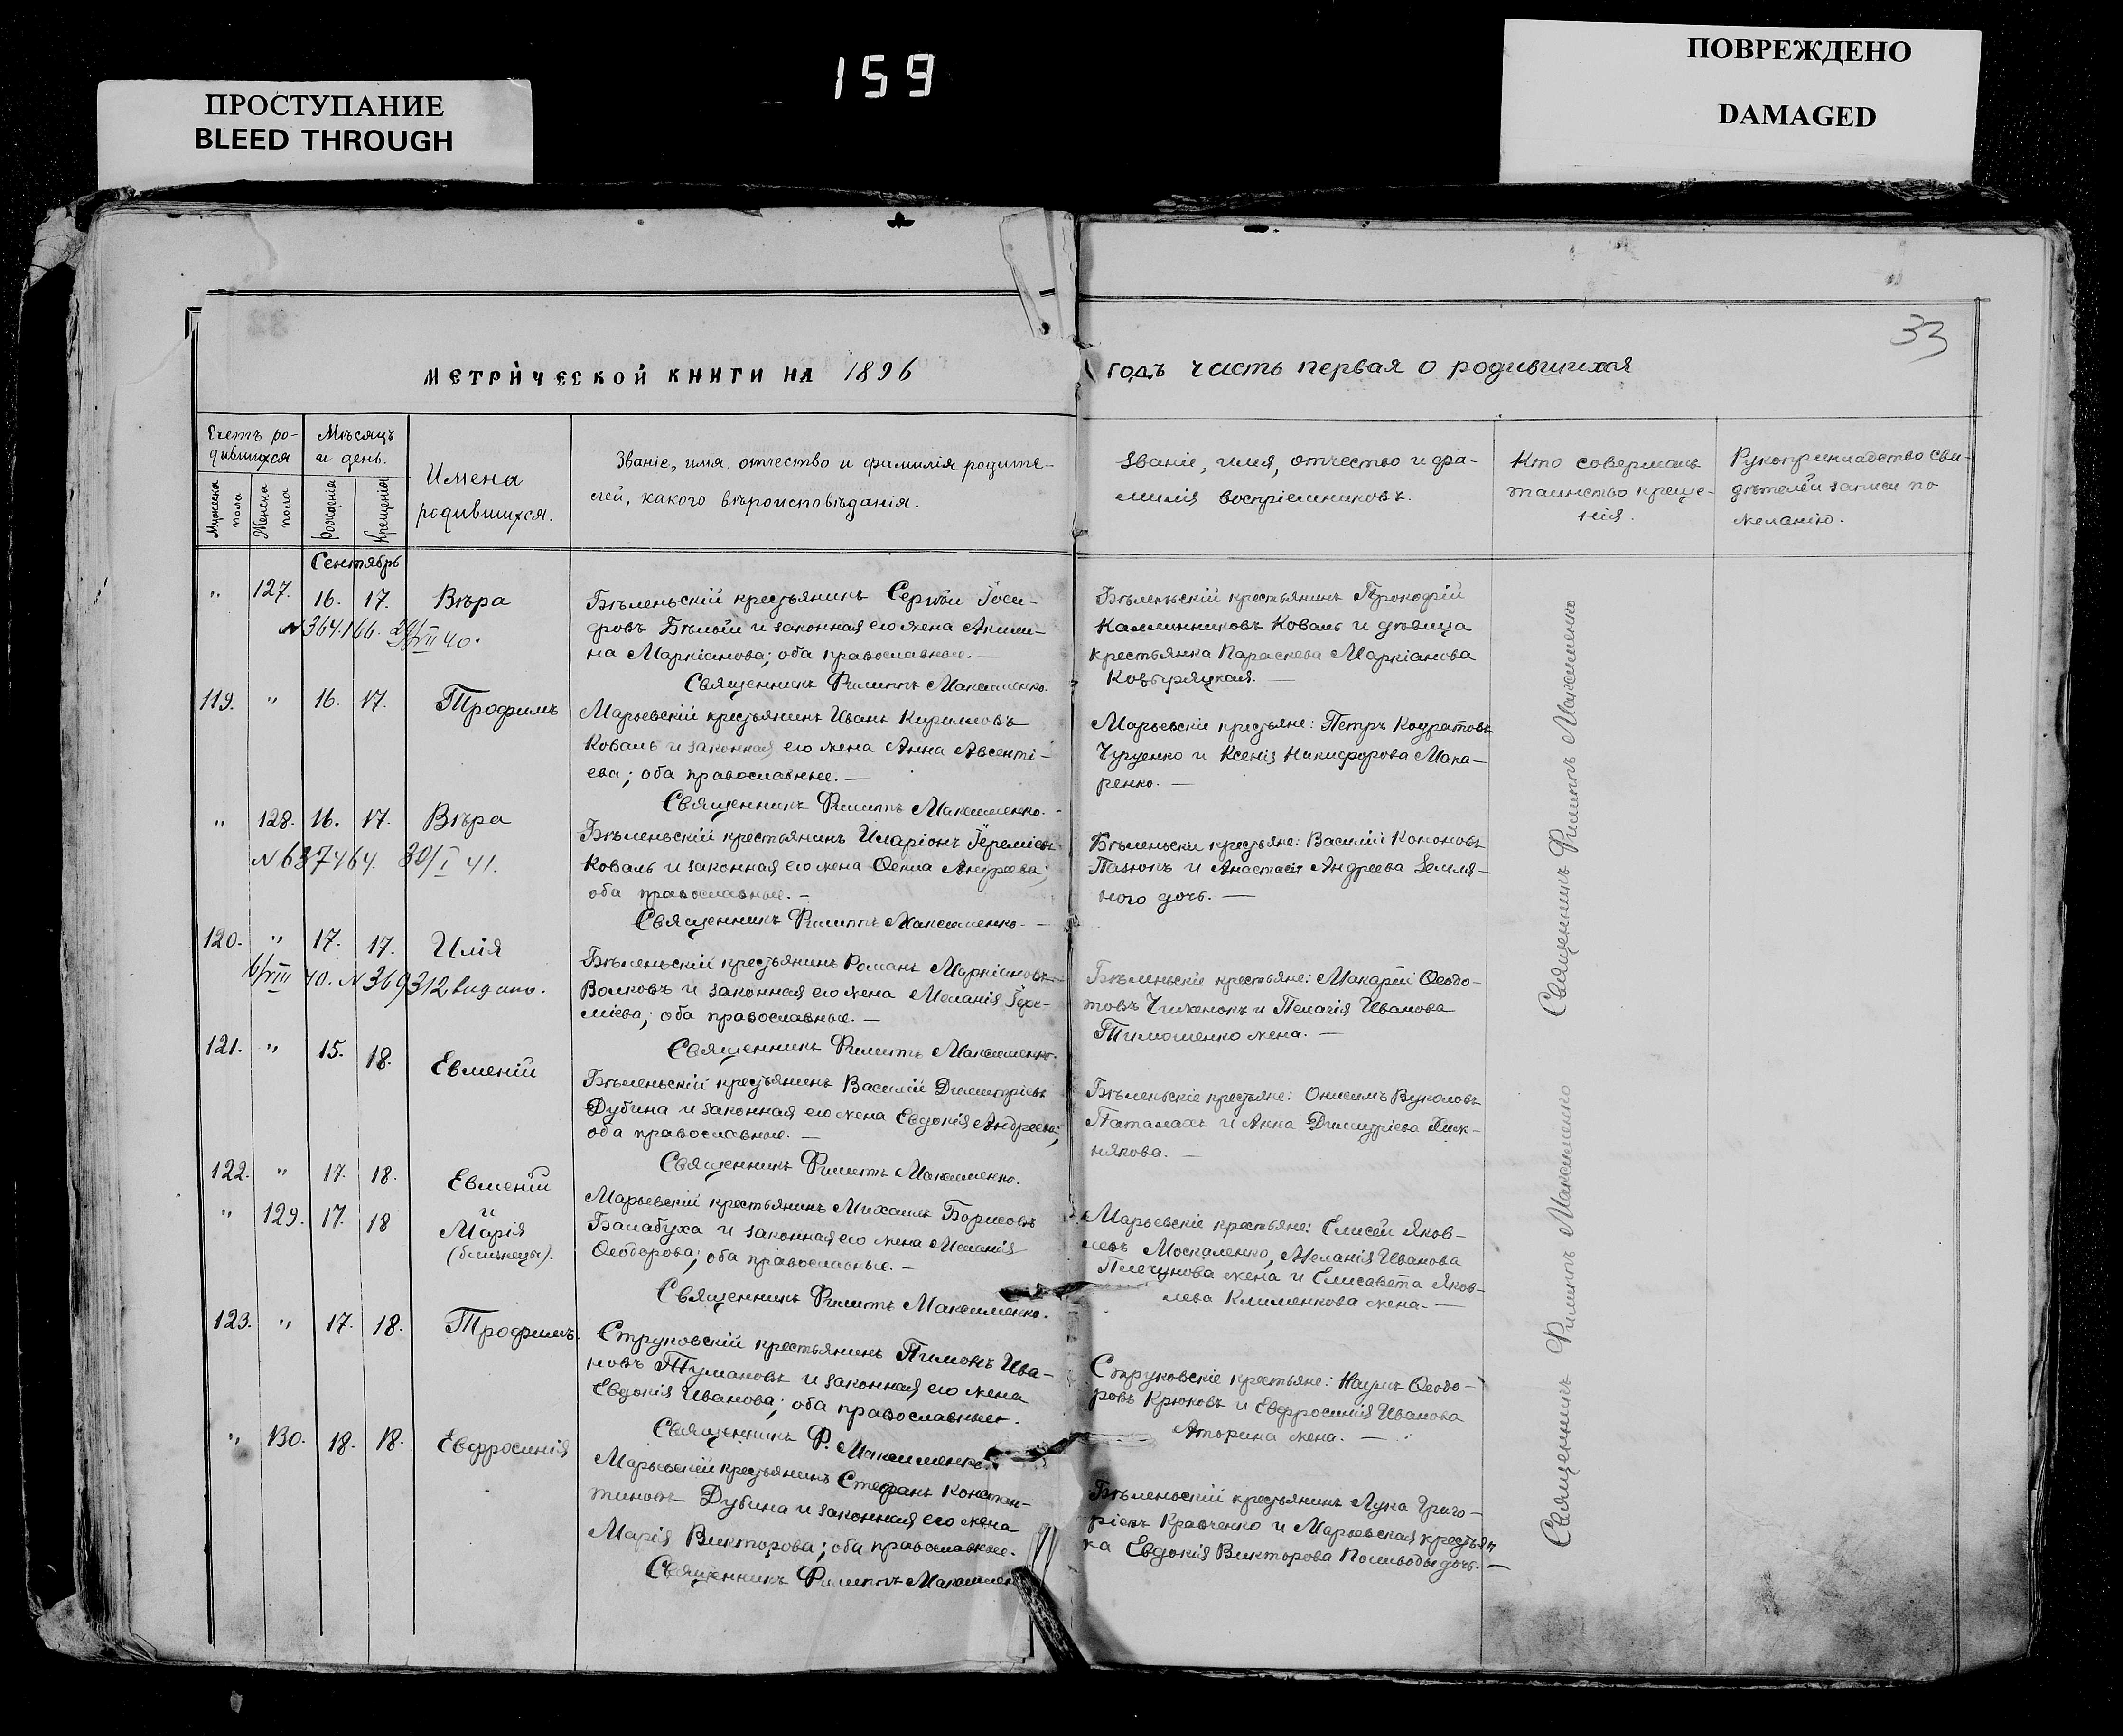 159
ПРОСТУПАНИЕ
BLEED THROUGH
ПОВРЕЖДЕНО
DAMAGED
33
МЕТРИЧЕСКОЙ КНИГИ НА 1896
годъ часть первая о родившихся
Счетъ ро-
дившихся
Мужеска
пола
Женска
пола
Мѣсяцъ
и день.
рожденія
крещенія
Имена
родившихся.
Званіе, имя, отчество и фамилія родите-
лей, какого вѣроисповѣданія.
Званіе, имя, отчество и фа-
милія воспріемниковъ.
Кто совершалъ
таинство креще-
нія.
Рукоприкладство сви-
дѣтелей записи по
желанію.
Сентябрь
" 127. 16. 17. Вѣра
N 364166.
Бѣленьскій крестьянинъ Сергѣй Іоси-
фовъ Бѣлый и законная его жена Акили-
на Маркіанова; оба православные. —
Священникъ Филиппъ Максименко.
Бѣленьскій крестьянинъ Прокофій
Каллинниковъ Коваль и дѣвица
крестьянка Параскева Маркіанова
119. " 16. 17. Трофимъ
Марьевскій крестьянинъ Иванъ Кирилловъ
Коваль и законная его жена Анна Авсенті-
ева; оба православные. —
Священникъ Филиппъ Максименко. -
Марьевскіе крестьяне: Петръ Кодратовъ
Чугуенко и Ксенія Никифорова Мака-
ренко. —
" 128. 16. 17. Вѣра
N 637464. 30/I 41.
Бѣленьскій крестьянинъ Иларіонъ Іереміевъ
Коваль и законная его жена Ѳекла Андреева;
оба православные. -
Священникъ Филиппъ Максименко. —
Бѣленьскіе крестьяне: Василій Кононовъ
Пазюкъ и Анастасія Андреева Земля-
ного дочь. —
120. " 17. 17. Илія
6/VIII 40. N 369312 выдано.
Бѣленьскій крестьянинъ Романъ Маркіановъ
Волковъ и законная его жена Меланія Іере-
міева; оба православные. —
Священникъ Филиппъ Максименко.
Бѣленьскіе крестьяне: Макарій Ѳеодо-
товъ Чиженокъ и Пелагія Иванова
Тимошенко жена. —
121. " 15. 18. Евменій
Бѣленьскій крестьянинъ Василій Димитріевъ
Дубина и законная его жена Евдокія Андреева;
оба православные. —
Священникъ Филиппъ Максименко.
Бѣленьскіе крестьяне: Онисимъ Вуколовъ
Паталахъ и Анна Димитріева Хиж-
някова. —
122. " 17. 18. Евменій
" 129. 17. 18 и Марія
(близнецы).
Марьевскій крестьянинъ Михаилъ Борисовъ
Балабуха и законная его жена Меланія
Ѳеодорова; оба православные. -
Священникъ Филиппъ Максименко.
Марьевскіе крестьяне: Елисей Яков-
левъ Москаленко, Меланія Иванова
Плечунова жена и Елисавета Яков-
лева Клименкова жена. —
123. " 17. 18. Трофимъ.
Струковскій крестьянинъ Пимонъ Ива-
новъ Тумановъ и законная его жена
Евдокія Иванова; оба православные.
Священникъ Ф. Максименко.
Струковскіе крестьяне: Наумъ Ѳеодо-
ровъ Крюковъ и Евфросинія Иванова
жена. —
" 130. 18. 18. Евфросинія
Марьевскій крестьянинъ Стефанъ Констан-
тиновъ Дубина и законная его жена
Марія Викторова; оба православные.
Священникъ Филиппъ Максимен
Бѣленьскій крестьянинъ Лука Григо-
ріевъ Кравченко и Марьевская крестьян
ка Евдокія Викторова Полыводы дочь. —
Священникъ Филиппъ Максименко
Священникъ Филиппъ Максименко